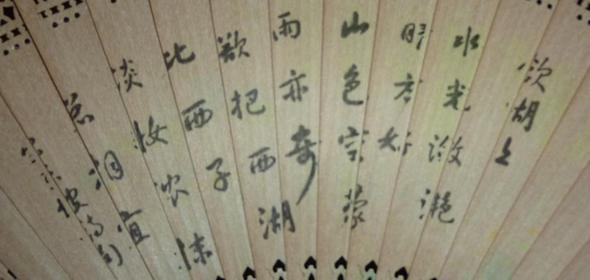 饮胡上
水光潋滟
晴方好
山色空蒙
雨亦奇
欲把西湖
比西子
淡妆浓抹
总相宜
宋坡诗句